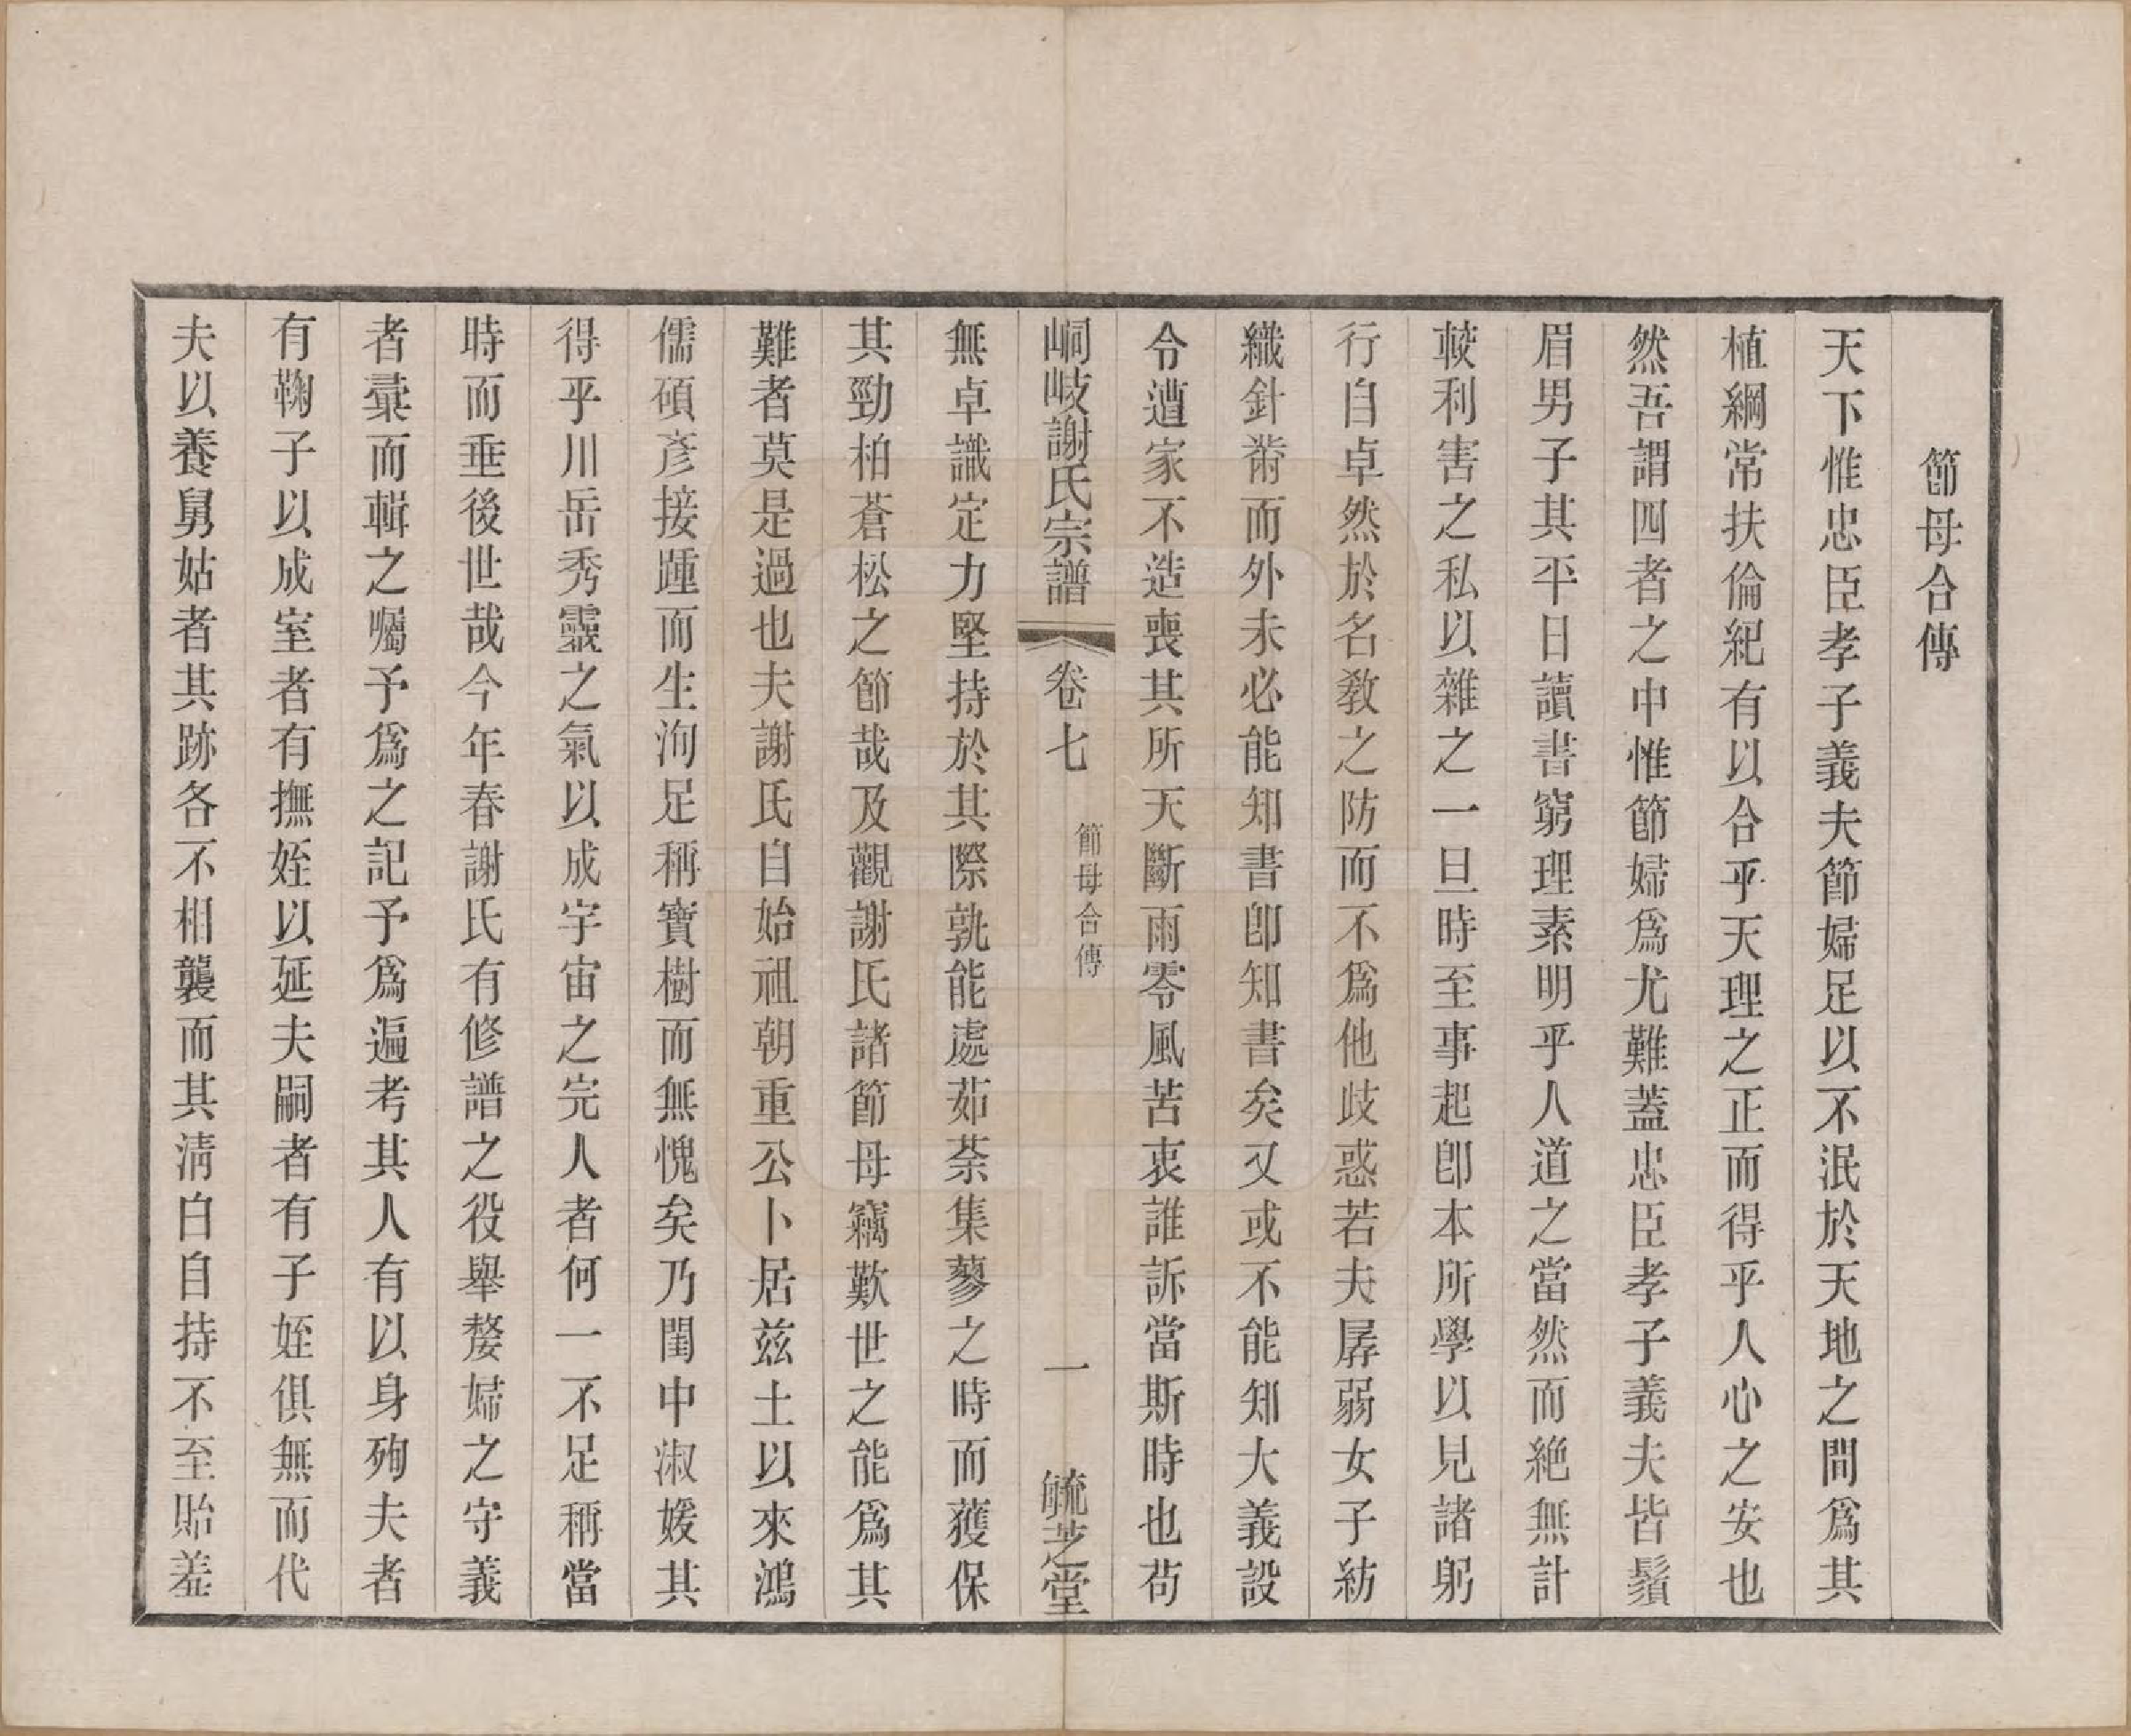 節母合傳
天下惟忠臣孝子義夫節婦足以不泯於天地之間爲其
植綱常扶倫紀有以合乎天理之正而得乎人心之安也
然吾謂四者之中惟節婦爲尤難蓋忠臣孝子義夫皆鬚
眉男子其平日讀書窮理素明乎人道之當然而絶無計
較利害之私以雜之一旦時至事起卽本所學以見諸躬
行自卓然於名敎之防而不爲他歧惑若夫孱弱女子紡
織針黹而外未必能知書卽知書矣又或不能知大義設
令遭家不造喪其所天斷雨零風苦衷誰訴當斯時也苟
峒岐謝氏宗譜 卷七 節母合傳 一 毓芝堂
無卓識定力堅持於其際孰能處茹荼集蓼之時而獲保
其勁柏蒼松之節哉及觀謝氏諸節母竊歎世之能爲其
難者莫是過也夫謝氏自始祖朝重公卜居兹土以來鴻
儒碩彥接踵而生洵足稱寶樹而無愧矣乃閨中淑媛其
得乎川岳秀靈之氣以成宇宙之完人者何一不足稱當
時而垂後世哉今年春謝氏有修譜之役舉嫠婦之守義
者彙而輯之囑予爲之記予爲遍考其人有以身殉夫者
有鞠子以成室者有撫姪以延夫嗣者有子姪俱無而代
夫以養舅姑者其跡各不相襲而其淸白自持不至貽羞